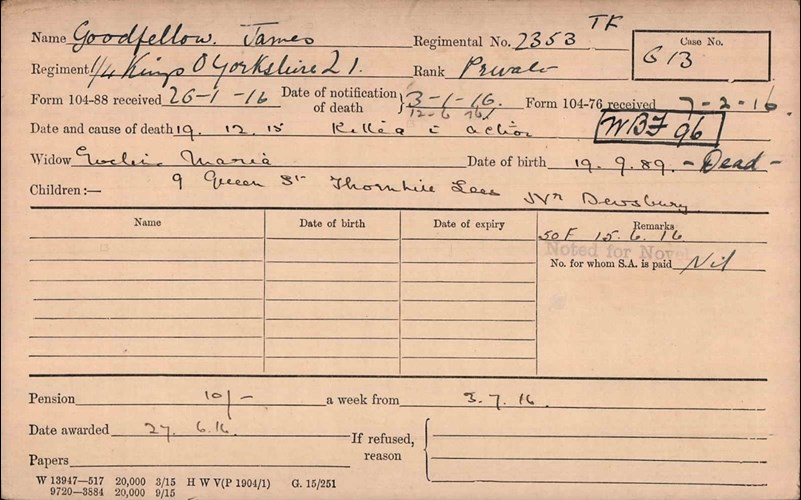 Name Goodfellow. James Regimental No. 2353 TF Case No. G 13
Regiment 1/4 Kings O Yorkshire L I. Rank Private
Form 104-88 received 26-1-16 Date of notification of death 3-1-16. Form 104-76 received 7-2-16.
12-6-16
Date and cause of death 19. 12. 15 Killed in action WBF 96
Widow Evelin Maria Date of birth 19. 9. 89. - Dead -
Children:— 9 Queen St Thornhill Lees Nr Dewsbury
Name Date of birth Date of expiry Remarks
SOF 15.6.16
Noted for
No. for whom S.A. is paid Nil
Pension 10/- a week from 3. 7. 16.
Date awarded 27. 6.16. If refused, reason
Papers
W 13947—517 20,000 3/15 H W V(P 1904/1) G. 15/251
9720—3884 20,000 9/15